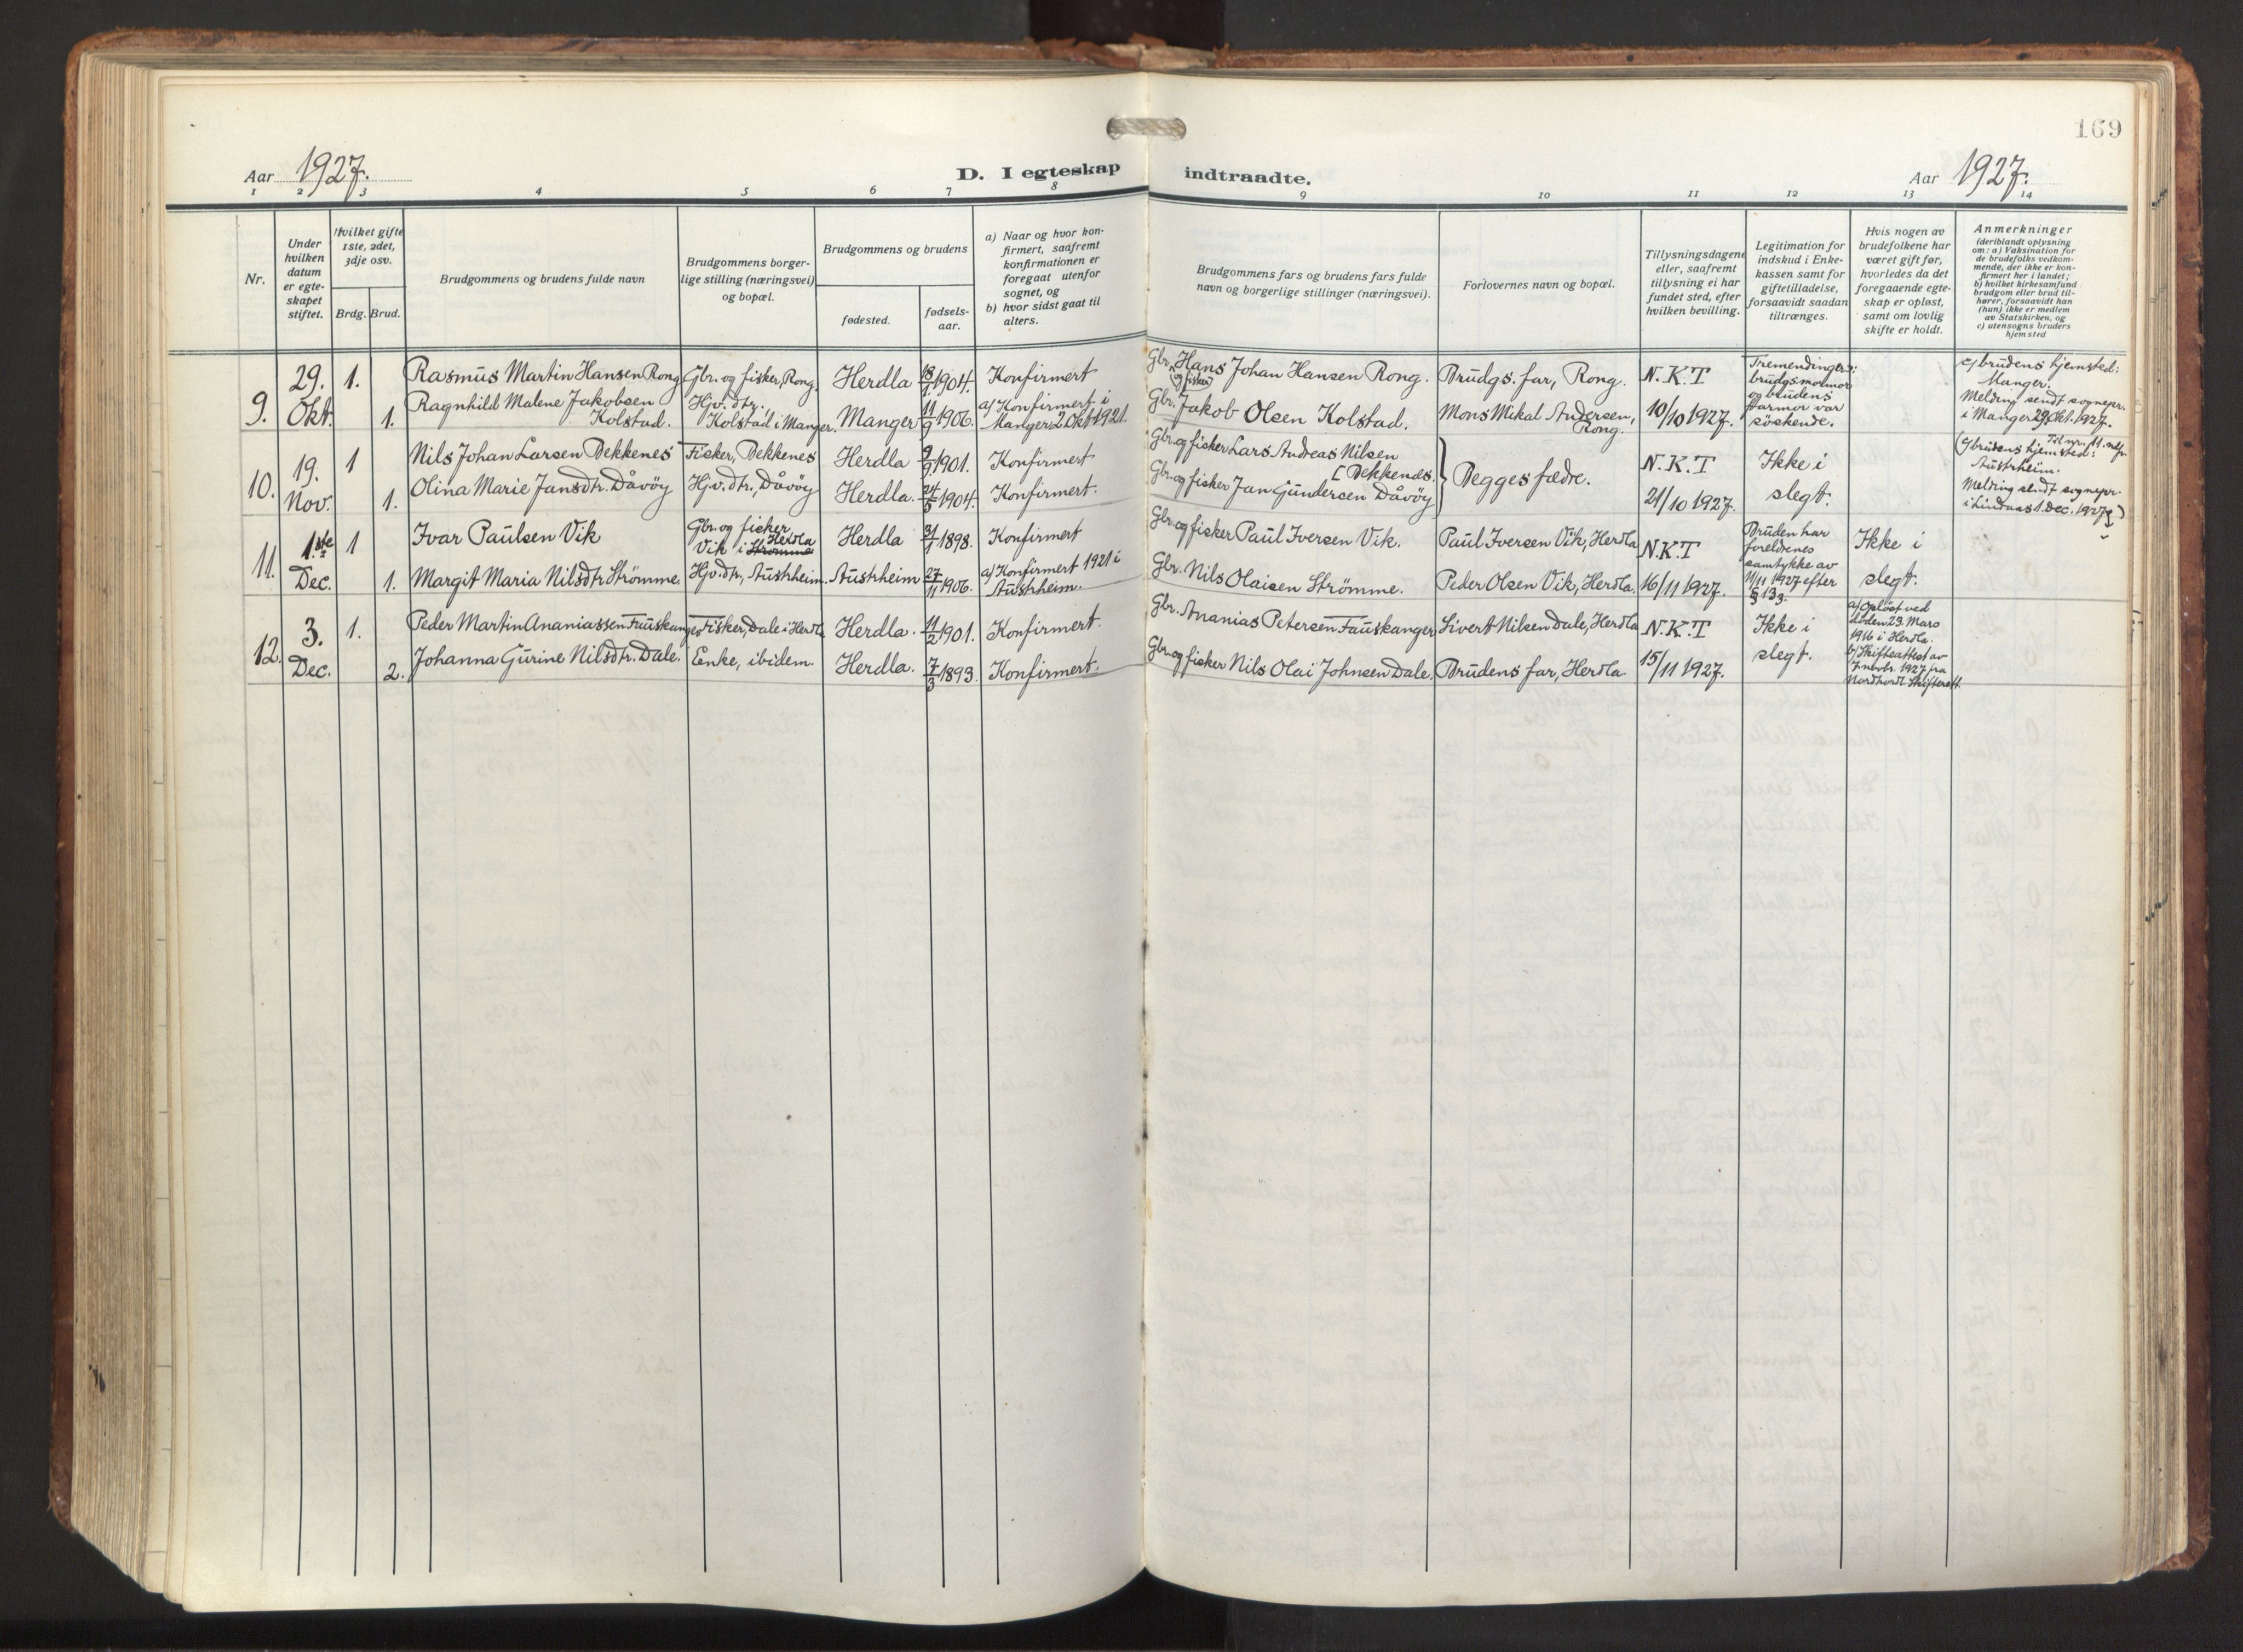 169
Aar 1927.
D. I egteskap indtraadte.
Aar 1927.
1 2 3 4 5 6 7 8 9 10 11 12 13 14
Nr.
Under hvilken datum er egteskapet stiftet.
Hvilket gifte 1ste, 2det, 3dje osv.
Brdg. Brud.
Brudgommens og brudens fulde navn
Brudgommens borgerlige stilling (næringsvei) og bopæl.
Brudgommens og brudens
fødested.
fødselsaar.
a) Naar og hvor konfirmert, saafremt konfirmationen er foregaat utenfor sognet, og
b) hvor sidst gaat til alters.
Brudgommens fars og brudens fars fulde navn og borgerlige stillinger (næringsvei).
Forlovernes navn og bopæl.
Tillysningsdagene eller, saafremt tillysning ei har fundet sted, efter hvilken bevilling.
Legitimation for indskud i Enkekassen samt for giftetilladelse, forsaavidt saadan tiltrænges.
Hvis nogen av brudefolkene har været gift før, hvorledes da det foregaaende egteskap er opløst, samt om lovlig skifte er holdt.
Anmerkninger
(deriblandt oplysning om: a) Vaksination for de brudefolks vedkommende, der ikke er konfirmert her i landet; b) hvilket kirkesamfund brudgom eller brud tilhører, forsaavidt han (hun) ikke er medlem av Statskirken, og c) utensogns bruders hjemsted
9. 29. Okt. 1. Rasmus Martin Hansen Rong Gbr. og fisker, Rong. Herdla 18/1 1904. Konfirmert Gbr. og fisker Hans Johan Hansen Rong. Brudgs. far, Rong. N.K.T 10/10 1927. Tremendinger: brudgs mormor og brudens farmor var söskende. c) brudens hjemsted: Manger. Melding sendt sognepr. i Manger 29 Okt. 1927.
1. Ragnhild Malene Jakobsen Kolstad. Hjv. dtr., Kolstad i Manger. Manger 11/9 1906. a) Konfirmert i Manger 2 Okt 1921. Gbr. Jakob Olsen Kolstad. Mons Mikal Andersen, Rong.
10. 19. Nov. 1 Nils Johan Larsen Bekkenes Fisker, Bekkenes Herdla 9/9 1901. Konfirmert Gbr. og fisker Lars Andreas Nilsen [Bekkenes. Begges fædre. N.K.T 21/10 1927. Ikke i slegt. (c/ brudens hjemsted: Austrheim. Melding sendt sognepr. i Lindaas 1. Dec. 1927)
1. Olina Marie Jansdtr. Dåvöy Hjv. dtr., Dåvöy Herdla. 24/5 1904. Konfirmert. Gbr. og fisker Jan Gundersen Dåvöy
11. 1ste Dec. 1 Ivar Paulsen Vik Gbr. og fisker Vik i Strømme Herdla Herdla 31/1 1898. Konfirmert Gbr. og fisker Paul Iversen Vik. Paul Iversen Vik, Herdla N.K.T 16/11 1927. Bruden har foreldrenes samtykke av 11/11 1927 efter § 133. Ikke i slegt.
1. Margit Maria Nilsdtr Strömme. Hjv. dtr, Austrheim. Austrheim 27/11 1906. a) Konfirmert 1921 i Austrheim. Gbr. Nils Olaisen Strömme. Peder Olsen Vik, Herdla.
12. 3. Dec. 1. Peder Martin Ananiassen Fauskanger Fisker, Dale i Herdla Herdla. 11/2 1901. Konfirmert. Gbr. Ananias Petersen Fauskanger Sivert Nilsen Dale, Herdla N.K.T 15/11 1927. Ikke i slegt. a/ Opløst ved døden 23. Mars 1916 i Herdla. b/ Skifteattest av 1927 fra Nordhordl Skifterett.
2. Johanna Gurine Nilsdtr. Dale. Enke, ibidem. Herdla. 7/3 1893. Konfirmert. Gbr. og fisker Nils Olai Johnsen Dale. Brudens far, Herdla